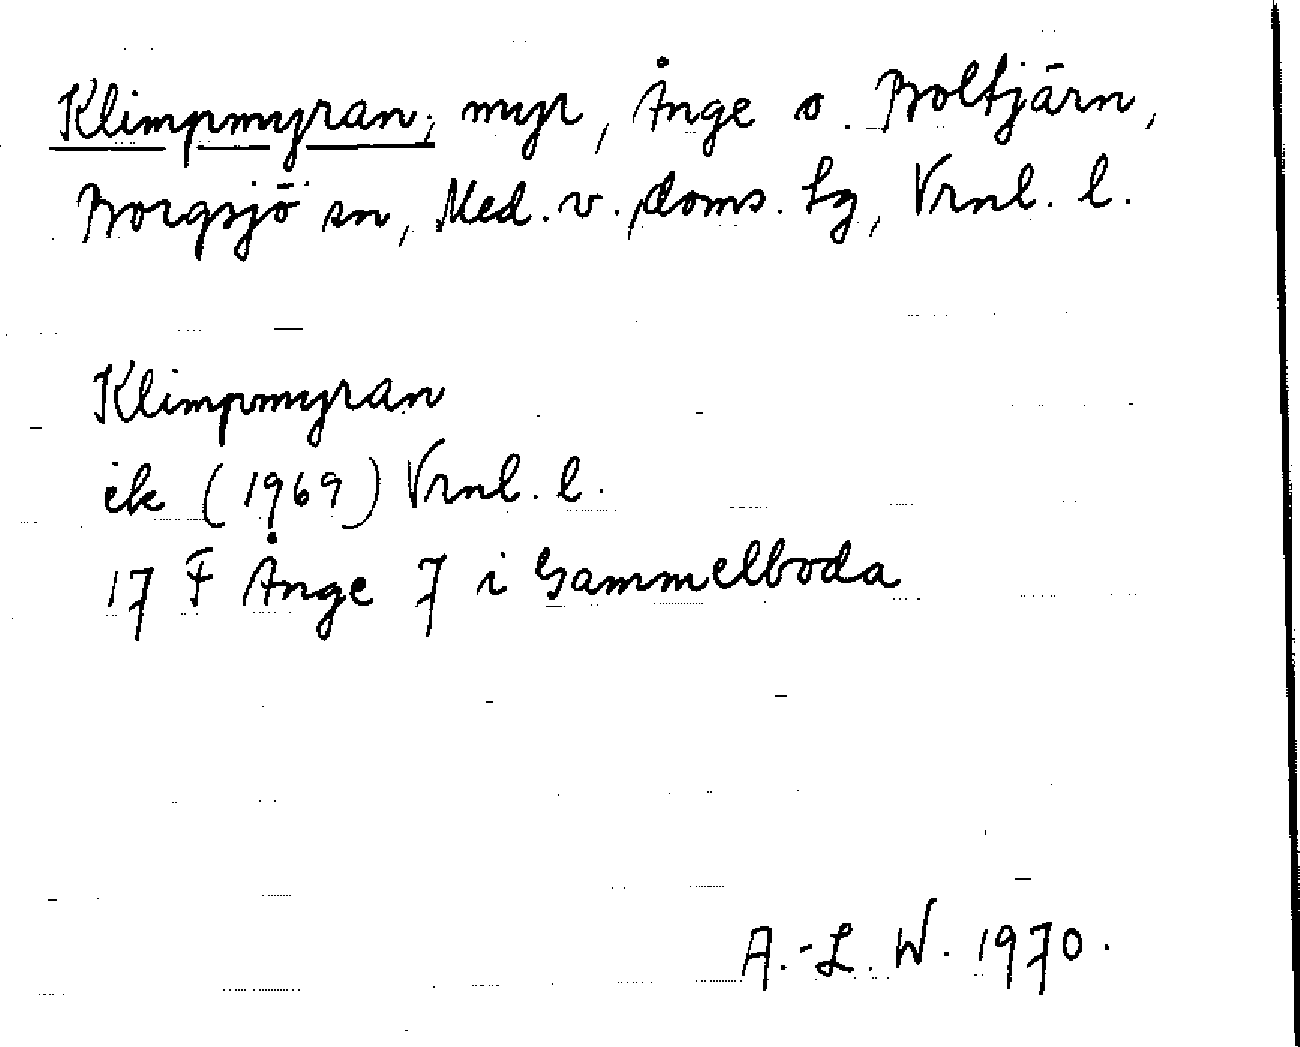 Klimpmyran, myr, Ånge o. Boltjärn,
Borgsjö sn, Med. v. doms. tg, Vrnl. l.
Klimpmyran
ek (1969) Vrnl. l.
17 F Ånge 7 i Gammelboda
A.-L. W. 1970.